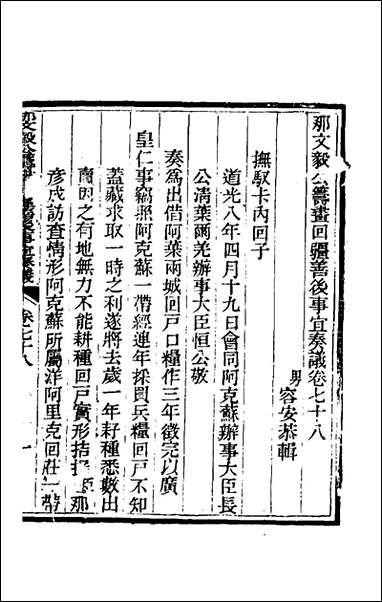 那文毅公籌畫回疆善後事宜奏議卷七十八
男容安恭輯
撫馭卡內回子
道光八年四月十九日會同阿克蘇辦事大臣長
公清葉爾羌辦事大臣恒公敬
奏為出借阿葉兩城回戶口糧作三年徵完以廣
皇仁事竊照阿克蘇一帶經連年採買兵糧回戶不知
蓋藏求取一時之利遂將去歲一年籽種悉數出
賣因之有地無力不能耕種回戶實形拮据臣那
彥成訪查情形阿克蘇所屬洋阿里克回莊一帶
卷七十八